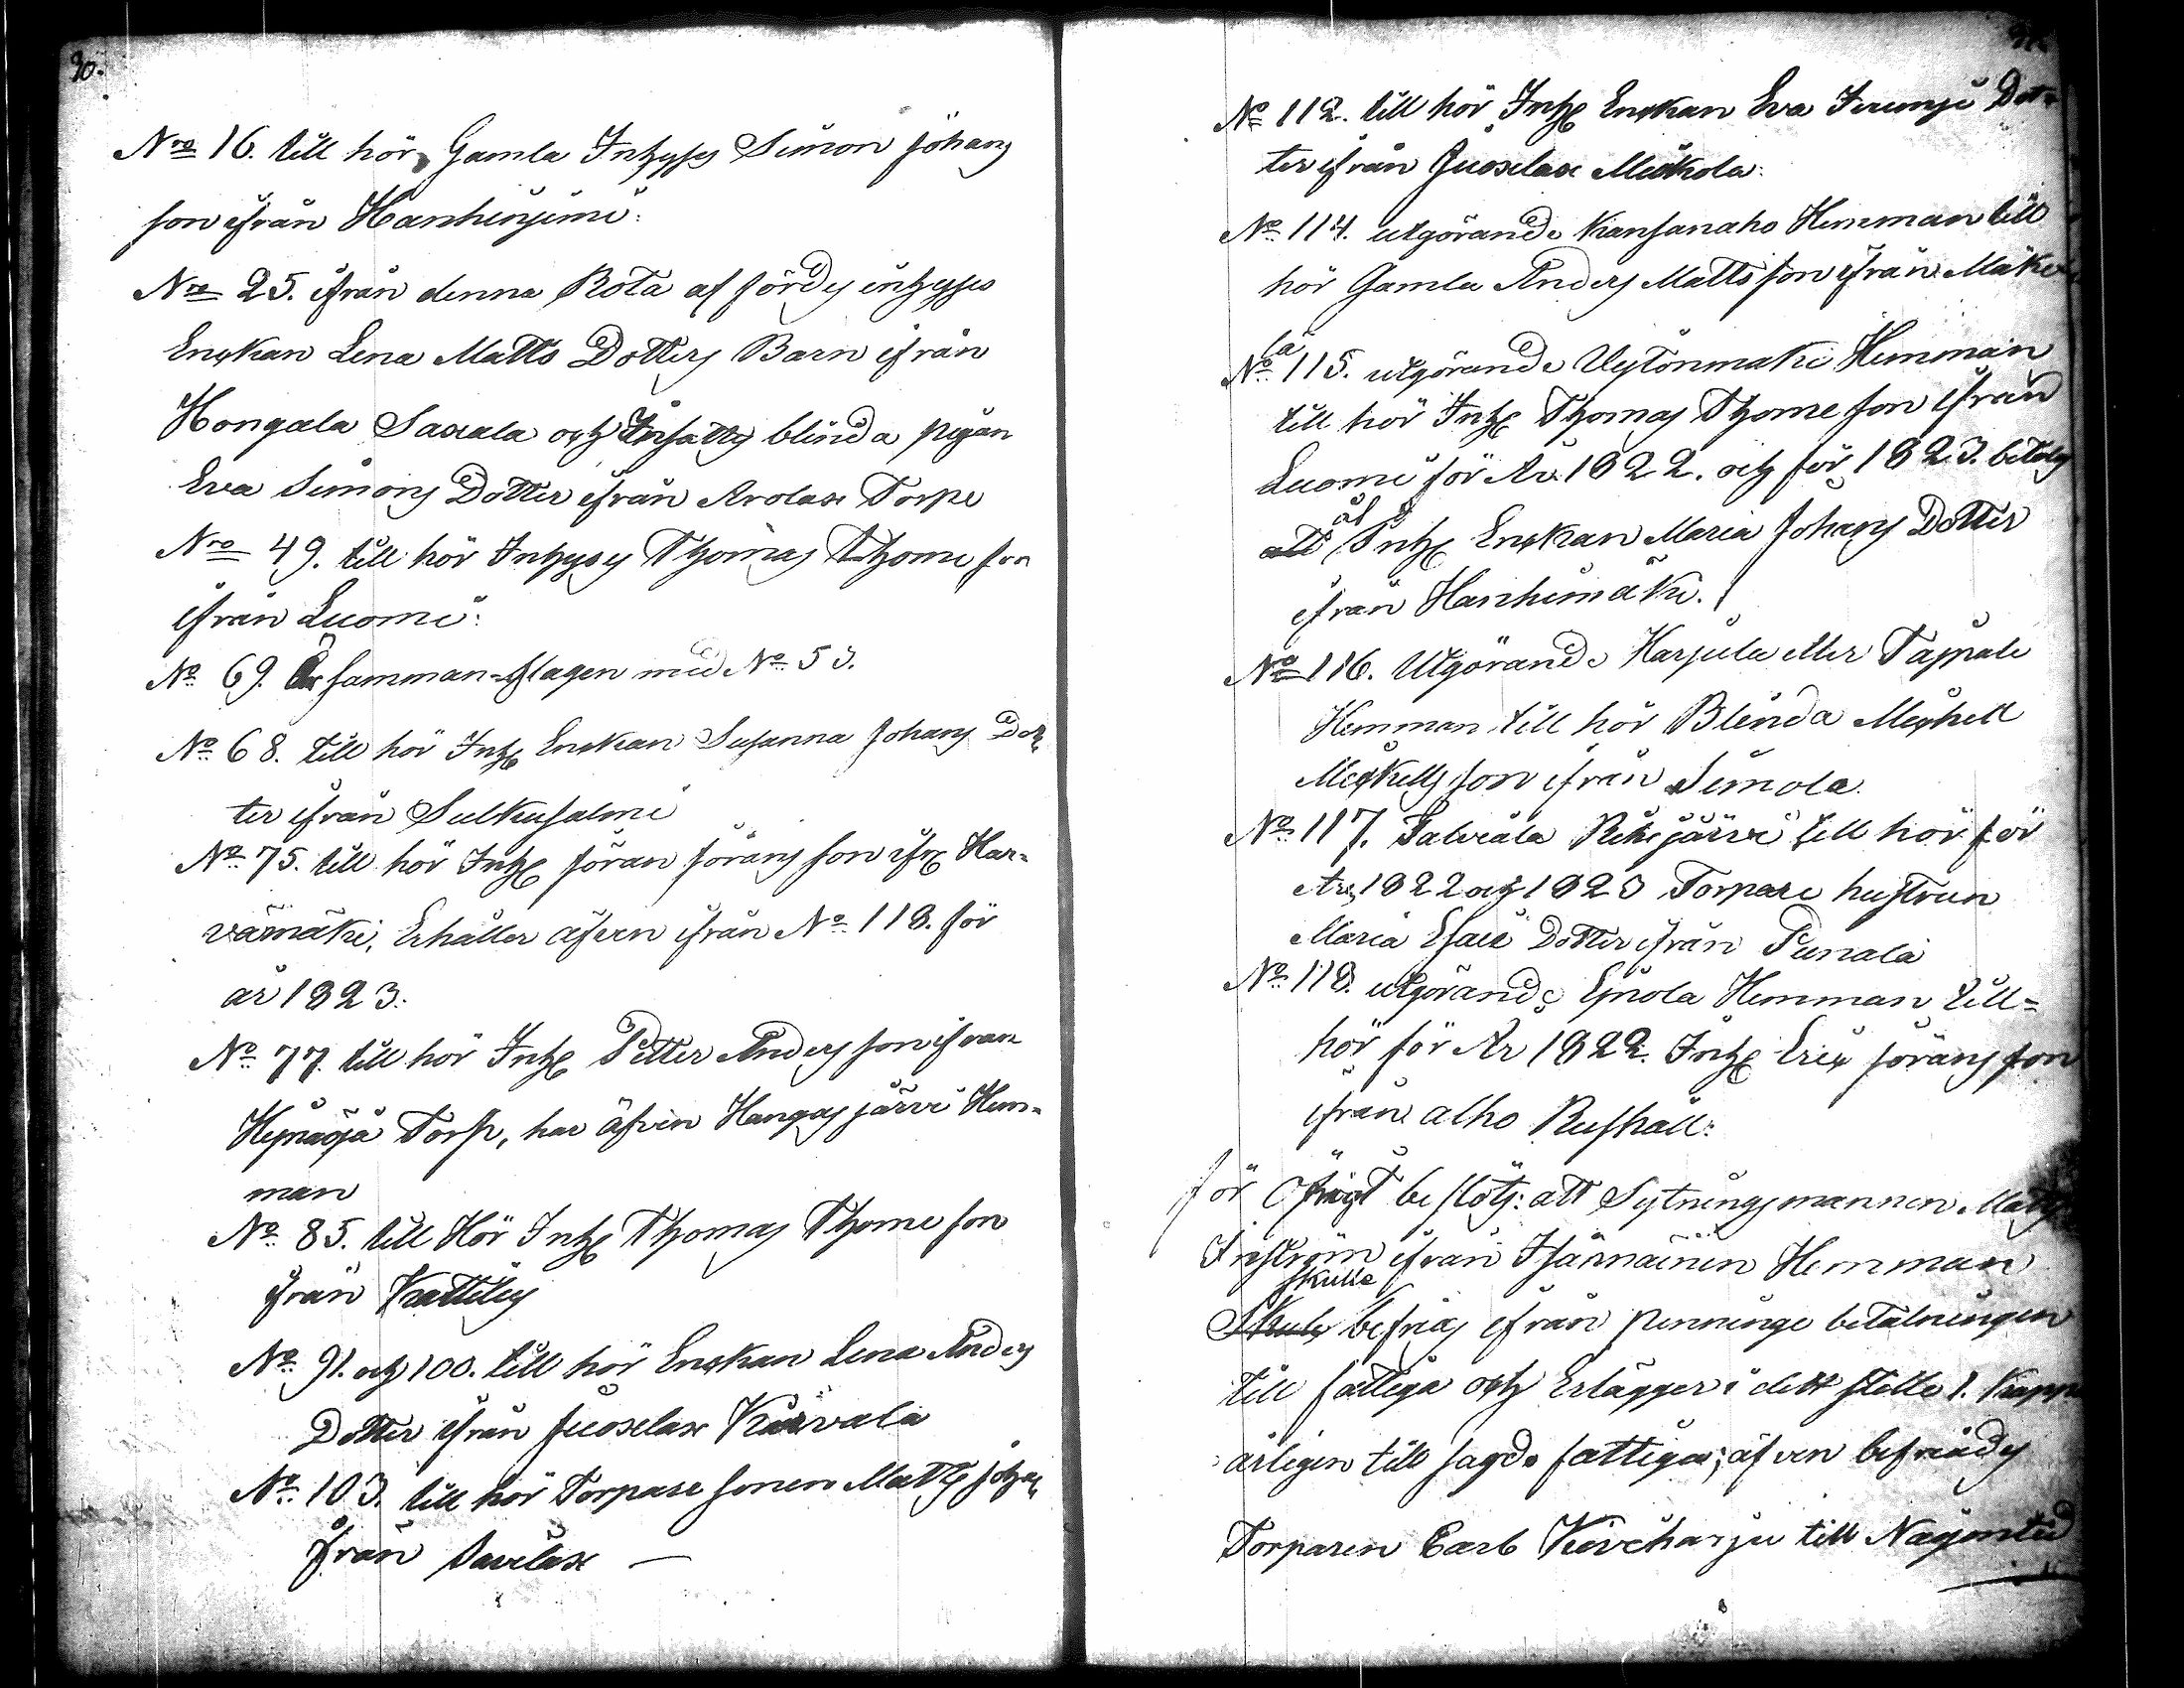 30.
Nro 16. till hör Gamla Inhyses Simon Johans
son ifrån Hanhinjemi.
Nro 25. ifrån denna Rota af fördes inhyses
Enckan Lena Matts Dotters Barn ifrån
Hongala Saxala och Insattes blinda pigan
Eva Simons Dotter ifrån Arolax Torpe
Nro 49. till hör Inhyses Thomas Thome son
ifrån Luomi.
No 69. Är samman-slagen med No 53.
No 68. till hör Inh Enckan Susanna Johans Dot
ter ifrån Sulkusalmi
No 75. till hör Inh Jöran Jörans son ifr Har=
vamäki, Erhåller äfven ifrån No 118. för
år 1823.
No 77. till hör Inh Petter Anders son ifrån
Torp, har äfven Hangasjärvi Hem=
man
No 85. till Hör Inh Thomas Thome son
ifrån Kattilus
No 91. och 100. till hör Enckan Lena Anders
Dotter ifrån Juoxlax Kurvala
No 103. till hör Torpare sonen Matts Joha
ifrån Savilax —
No 112. till hör Inh Enckan Eva Jeremie Dot=
ter ifrån Juoxlax Mickola.
No 114. utgörande Kansanaho Hemman till
hör Gamla Anders Matts son ifrån Mäke
lä
No 115. utgörande Uijtonmäki Hemman
till hör Inh Thomas Thome son ifrån
Luomi för År 1822. och för 1823. betals
åt
att Inh Enckan Maria Johans Dotter
ifrån Hanhimäki.
No 116. Utgörande Harjula eller Tappale
Hemman till hör Blinda Michell
Mickells son ifrån Simola.
No 117. Salviala Pitkejärvi till hör för
År 1822 och 1823 Torpare hustrun
Maria Esaie Dotter ifrån Punala
No 118. utgörande Epola Hemman till=
hör för År 1822. Inh Eric Jörans son
ifrån alho Rushåll.
för Öfrigt beslöts: att Sytningsmannen Matts
ifrån Isännäinen Hemman
skulle
Skuls befrias ifrån penninge betalningen
till fattiga och Erlägger i dess stelle 1. Kappe
årligen till sagde fattiga; äfven befriades
Torparen Carl Kiviharju till Någontid